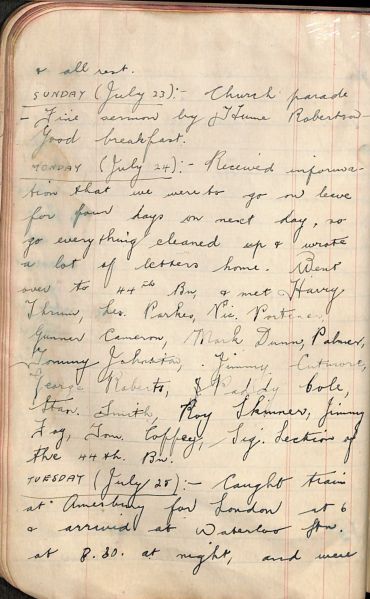 & all rest.
SUNDAY (July 23):- Church parade
- Fine sermon by J Hume Robertson -
Good breakfast.
MONDAY (July 24):- Received informa-
tion that we were to go on leave
for four days on next day, so
go everything cleaned up & wrote
a lot of letters home. Went
over to 44th Bn. & met Harry
Thrum, Les. Parkes, Vic. Porter,
Gunner Cameron, Mark Dunn, Palmer,
Tommy Johnston. Jimmy Cutmore,
George Roberts, & Paddy Cole,
Stan. Smith, Roy Skinner, Jimmy
Fog, Tom. Coffey, Sig. Section of
the 44th. Bn.
TUESDAY (July 25):- Caught train
at Amesbury for London at 6
& arrived at Waterloo Stn.
at 8.30. at night, and were